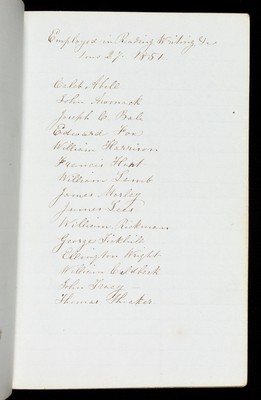 Employed in Reading Writing &c
June 27. 1851
Caleb Abell
John
Joseph C. Bale
Edward Fox
William Harrison
Francis Hunt
William Lamb
James Morley
James
William Rickman
George Tickhill
Ellington Wright
William
John Tracy
Thomas Thraker